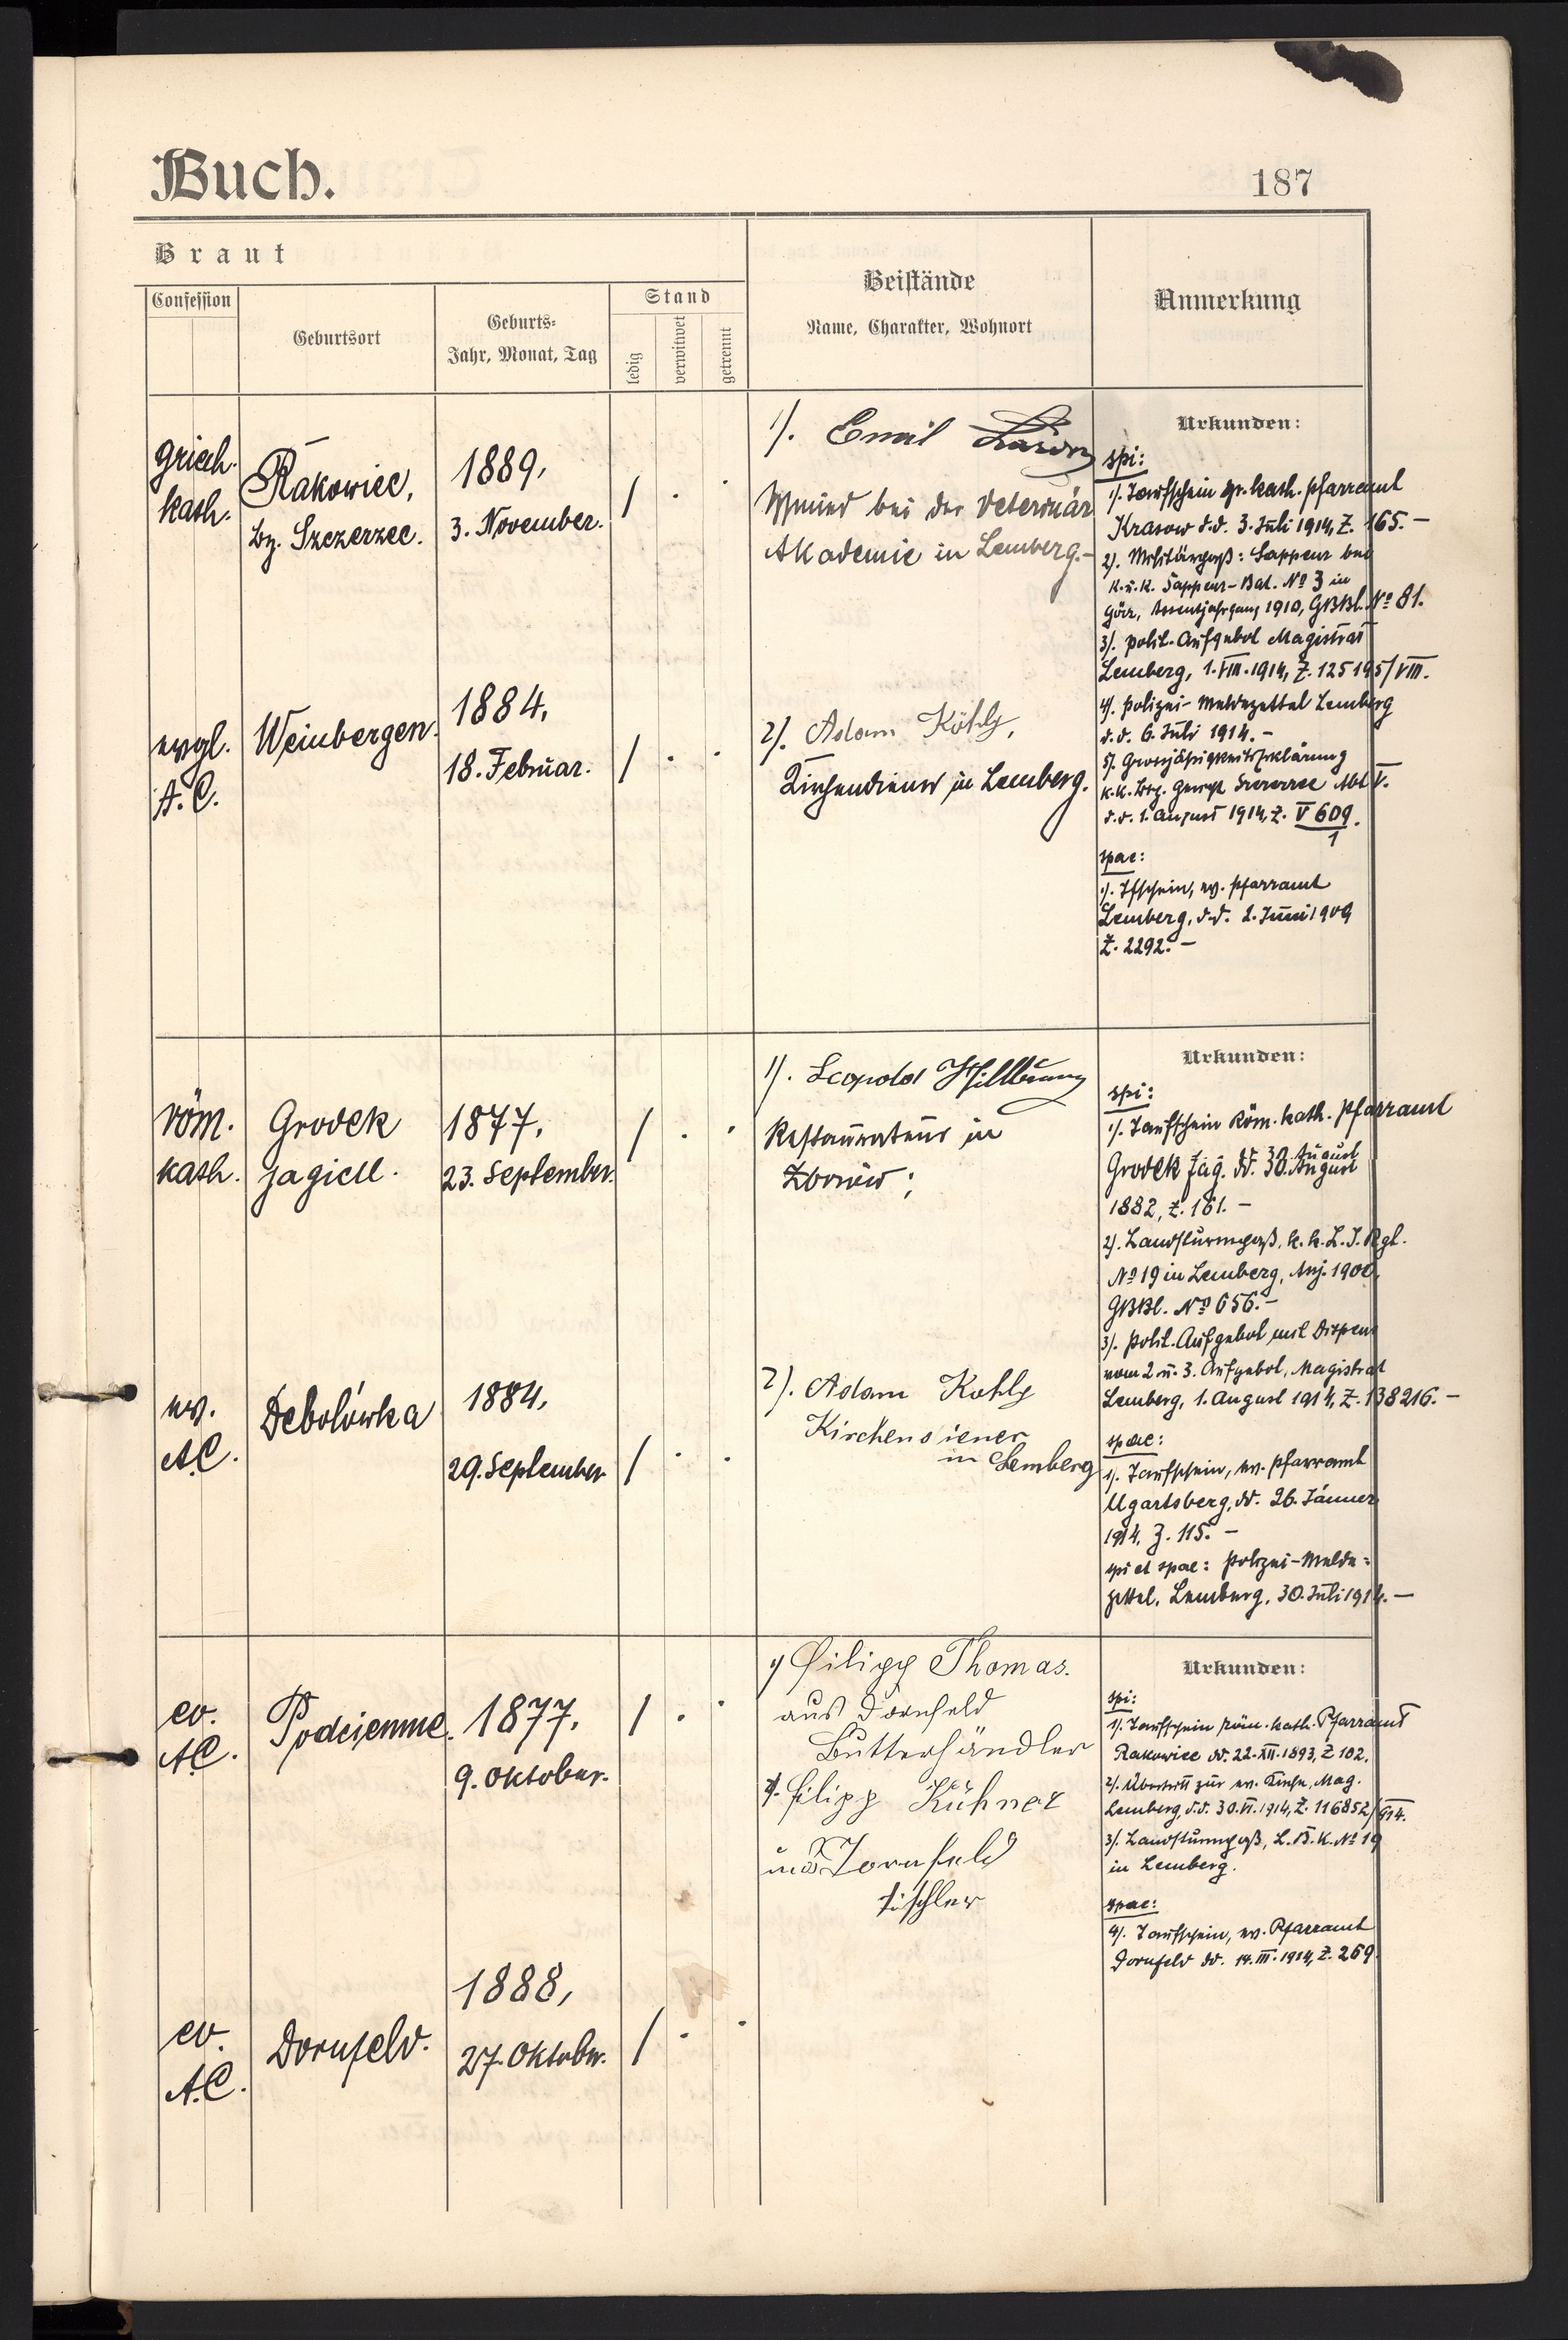 Buch.
187
Braut
Confession
Geburtsort
Geburts-
Jahr, Monat, Tag
Stand
ledig
verwitwet
getrennt
Beistände
Name, Charakter, Wohnort
Anmerkung
griech.
kath.
Rakowiec,
bz. Szczerzec.
1889,
3. November.
1). Emil
bei der Veterinär
Akademie in Lemberg.-
evgl.
A.C.
Weinbergen.
1884,
18. Februar.
2). Adam Köhly,
Kirchendiener in Lemberg.
Urkunden:
spi:
1). Taufschein gr. kath. Pfarramt
Krasow d.d. 3. Juli 1914, Z. 165.-
2). Militärpaß: Sappeur bei
k.u.k. Sappeur-Bat. No 3 in
Görz, Assentjahrgang 1910, GBBl. No 81.
3). polit. Aufgebot Magistrat
Lemberg, 1.VIII.1914, Z. 125195/VIII.
4). Polizei-Meldezettel Lemberg
d.d. 6. Juli 1914.-
5). Grossjährigkeitserklärung
k.k. Bez. Gericht Szczerzec Abt V.
d.d. 1. August 1914, Z. V 609.
1
spae:
1). Tfschein, ev. Pfarramt
Lemberg, d.d. 2. Juni 1909
Z. 2292.-
röm.
kath.
Grodek
jagiell.
1877,
23. September.
1). Leopold
Restaurateur in
Zborów;
ev.
A.C.
Debolówka
1884,
29. September
2). Adam Kohly
Kirchendiener
in Lemberg
Urkunden:
spi:
1). Taufschein Röm. kath. Pfarramt
August
Grodek Jag. dd. 30. August
1882, Z. 161.-
2). Landsturmpaß, k.k. L.I. Rgt.
No 19 in Lemberg, Asj. 1900,
GBBl. No 656.-
3). polit. Aufgebot mit Dispens
vom 2 u. 3. Aufgebot, Magistrat
Lemberg, 1. August 1914, Z. 138216.-
spae:
1). Taufschein, ev. Pfarramt
Ugartsberg, dd. 26. Jänner
1914, Z. 115.-
spi et spae: Polizei-Melde=
zettel, Lemberg, 30. Juli 1914.-
ev.
AC.
Podciemne.
1877,
9. Oktober.
1) Filipp Thomas.
aus Dornfeld
Butterhändler
2). Filipp Kühner
aus Dornfeld
Tischler
ev.
A.C.
Dornfeld.
1888,
27. Oktober.
Urkunden:
spi:
1). Taufschein röm. kath. Pfarramt
Rakowiec dd. 22.XII.1893, Z 102.
2). Übertritt zur ev. Kirche, Mag.
Lemberg, d.d. 30.VI.1914, Z. 116852/914.
3). Landsturmpaß, L.B.K. No 19
in Lemberg.
spae:
4). Taufschein, ev. Pfarramt
Dornfeld dd. 14.III.1914, Z. 269.